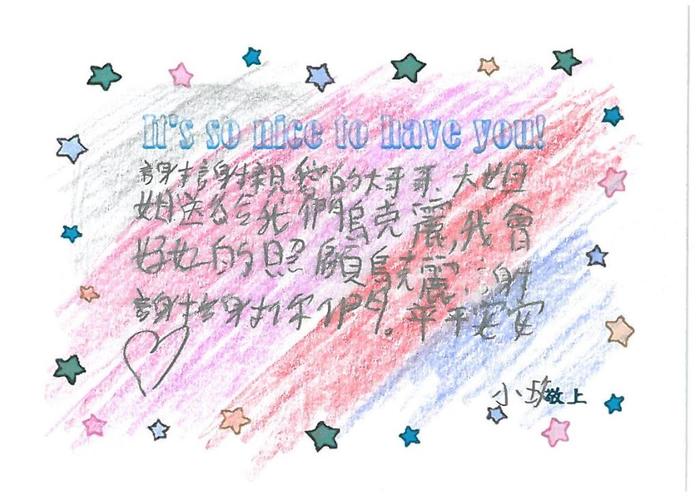 It's so nice to have you!
謝謝親愛的大哥哥、大姐
姐送給我們烏克麗,我會
好好的照顧烏克麗,謝
謝謝你們。平平安安
小 敬上